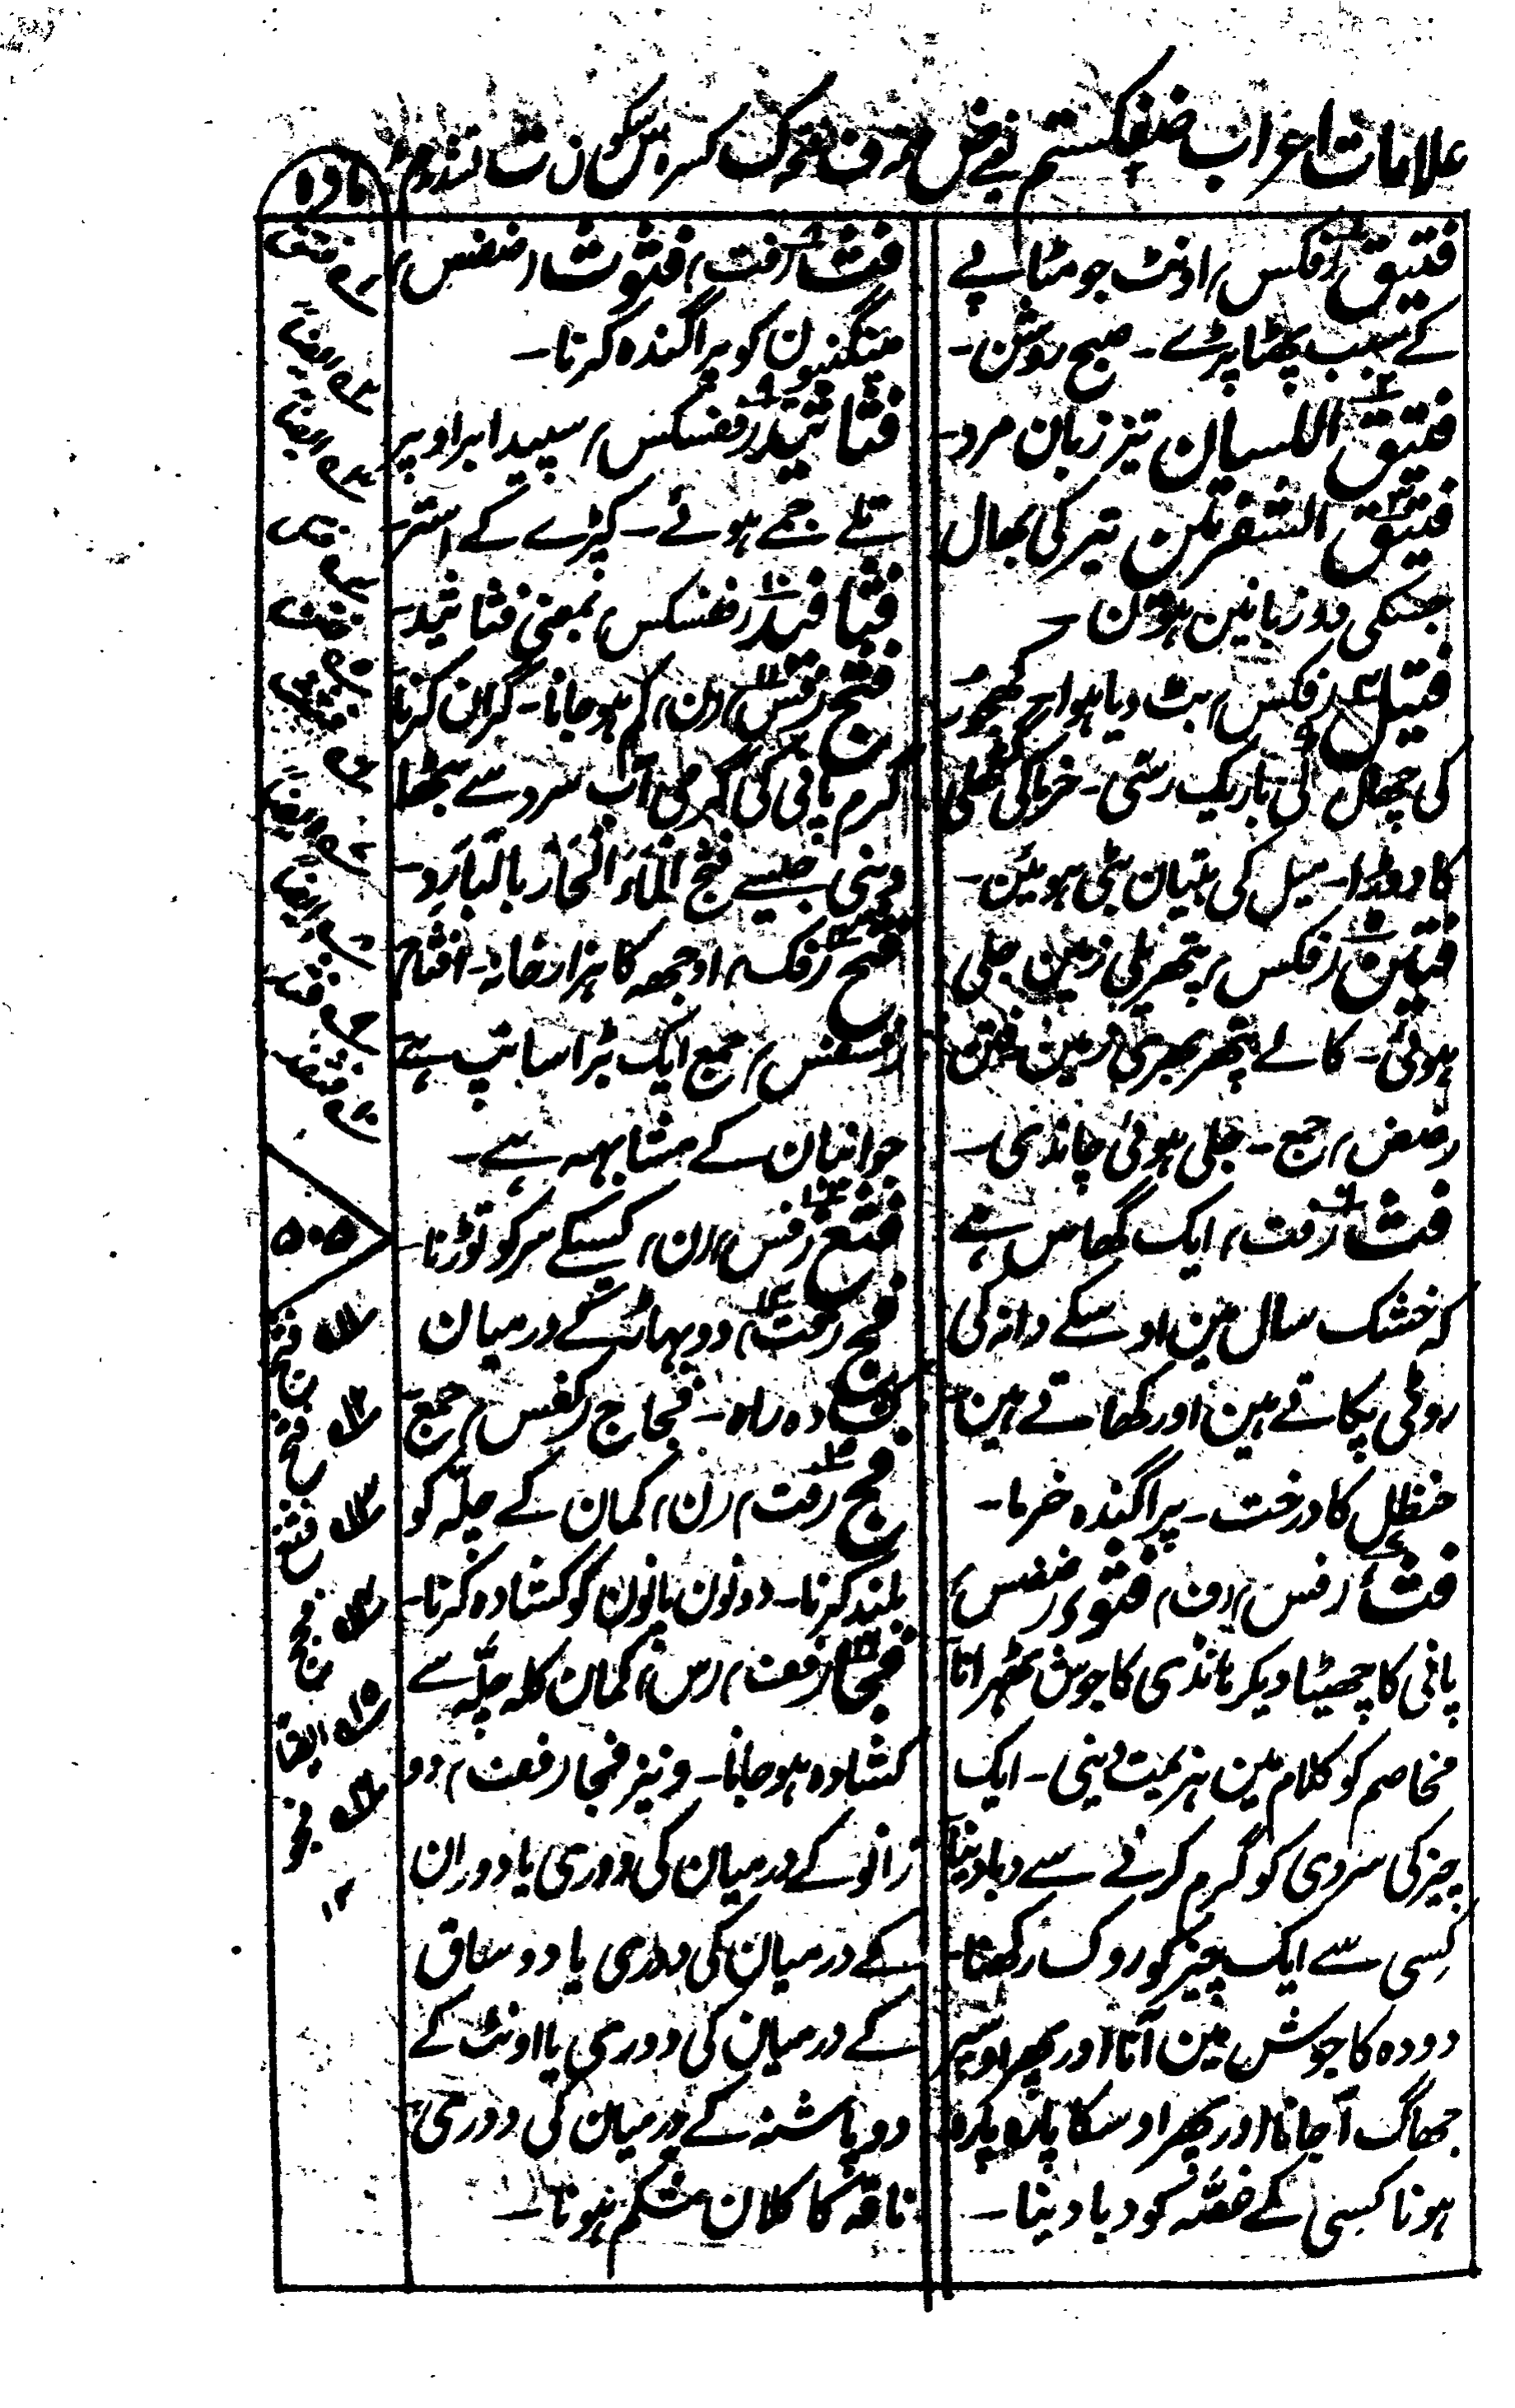 علامات اعراب ضفکستم یعنے ض ضمہ ف فتحہ ک کسرہ س سکون ت تشدید م
مادہ
فتیق (فکس) اونٹ جو مٹاپے
کے سبب پھٹا پڑے۔ صبح روشن۔
فتیق اللسان تیز زبان مرد۔
فتیق الشفرتین تیر کی بھال
جسکی دو زبانین ہون۔
فتیل (فکس) بٹ دیا ہوا۔ کھجور
کی چھال کی باریک رسّی۔ خرما کی گٹھلی
کا ڈورا۔ میل کی بتیان بٹی ہوئین۔
فتین (فکس) پتھریلی زمین جلی
ہوئی۔ کالے پتھر بھری زمین فتن
(ضض) جمع۔ جلی ہوئی چاندی۔
فث (فت) ایک گھاس ہے
کہ خشک سال مین اوسکے دانہ کی
روٹی پکاتے ہین اور کھاتے ہین
حنظل کا درخت۔ پراگندہ خرما۔
فثأ (فس) (ف) فثوء (ضضس)
پانی کا چھینٹا دیکر ہانڈی کا جوش ٹھہرانا
مخاصم کو کلام مین ہزیمت دینی۔ ایک
چیز کی سردی کو گرم کرنے سے دبا دینا
کسی سے ایک چیز کو روک رکھنا۔
دودہ کا جوش مین آنا اور پھر اوسپر
جھاگ آجانا اور پھر اوسکا پارہ پارہ
ہونا کسی کے غصّہ کو دبا دینا۔
فث (فت) فثوث (ضضس)
مینگنیون کو پراگندہ کرنا۔
فثاثید (ففسکس) سپید ابر اوپر
تلے جمے ہوئے۔ کپڑے کے استر۔
فثافید (ففسکس) بمعنی فثاثید۔
فثج (فس) (ن) کم ہو جانا۔ گران کرنا
گرم پانی کی گرمی آب سرد سے بٹھا
دینی جیسے فثج الماء الحار بالبارد۔
فثح (فک) اوجھہ کا ہزار خانہ۔ افثاح
(فسفس) جمع ایک بڑا سانپ ہے
جو انیان کے مشابہہ ہے۔
فثغ (فس) (ن) کسیکے سر کو توڑنا۔
فج (فت) دو پہاڑ کے درمیان
کشادہ راہ۔ فجاج (کفس) جمع
فج (فت) (ن) کمان کے چلّہ کو
بلند کرنا۔ دونون پانون کو کشادہ کرنا۔
فجا (فف) (س) کمان کا چلّہ سے
کشادہ ہو جانا۔ و نیز فجا (فف) دو
زانو کے درمیان کی دوری یا دو ران
کے درمیان کی دوری یا دو ساق
کے درمیان کی دوری یا اونٹ کے
دو پاشنہ کے درمیان کی دوری
ناقہ کا کلان شکم ہونا۔
۵۰۵
ایضا
۱۲